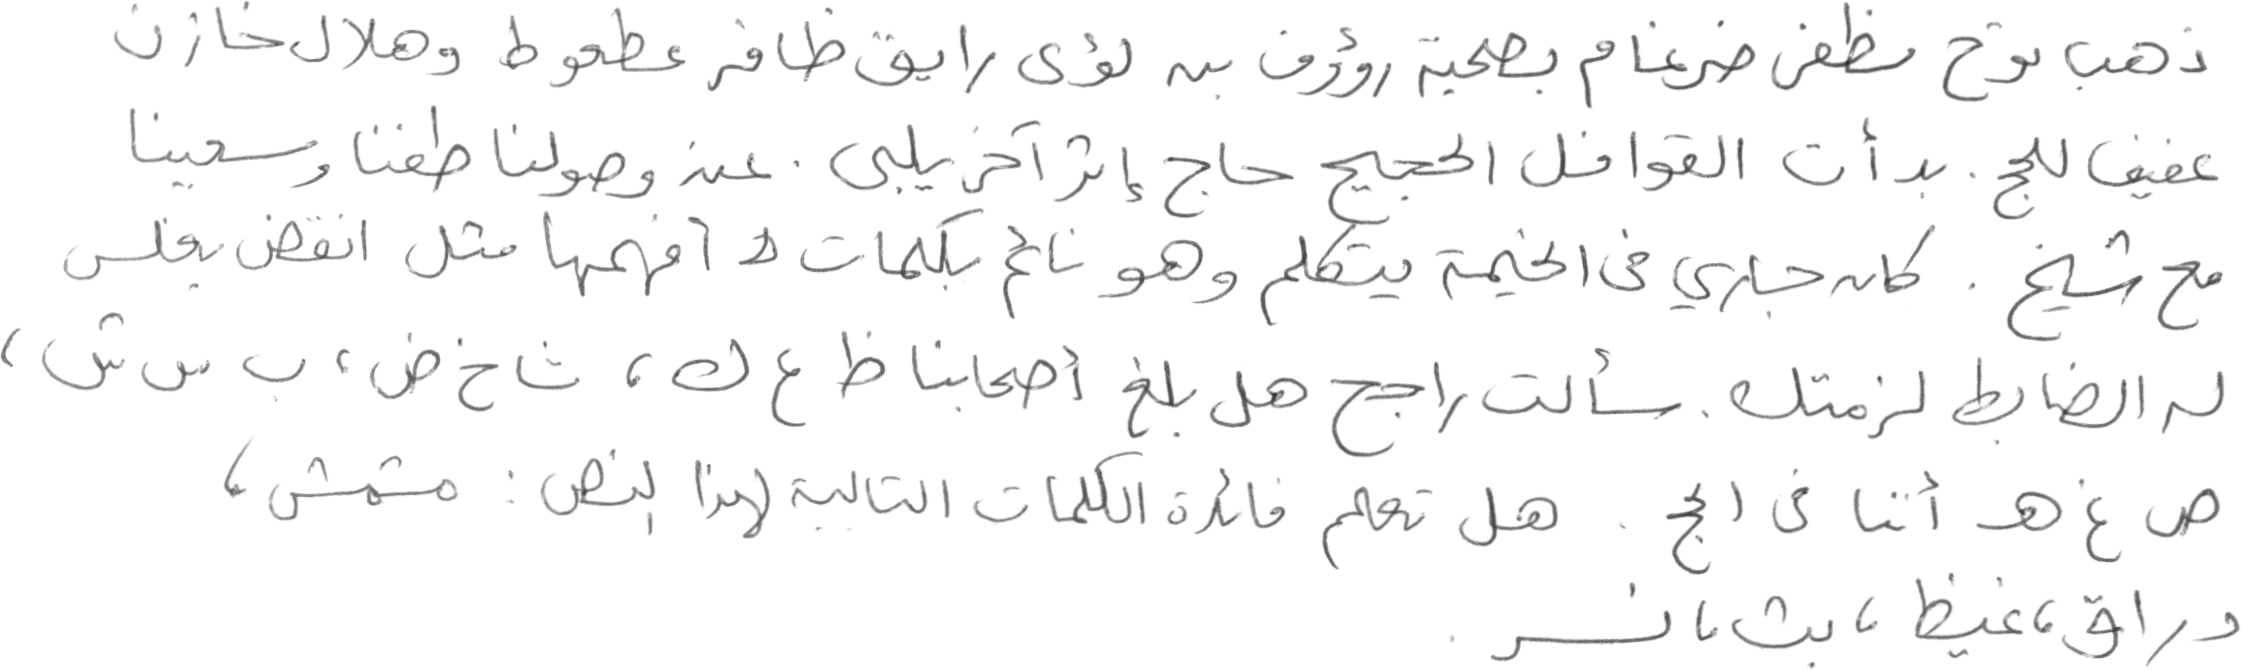 ذهب نوح مظفر ضرغام بصحبة رؤوف بن لؤى رايق ظافر عطعوط وهلال خازن
عفيف للحج . بدأت القوافل الحجيج حاج إثر آخر يلبى . عند وصولنا طفنا وسعينا
مع شيخ . كان جاري فى الخيمة يتكلم وهو نائم بكلمات لا أفهمها مثل انقض بغلس
له الضابط لزمتك . سألت راجح هل بلغ أصحابنا ظ ع ك ، ث خ ض ، ب س ش ،
ص غ هـ أننا فى الحج . هل تعلم فائدة الكلمات التالية لهذا النص : مشمش ،
دراق ، غيظ ، بث ، نسر .